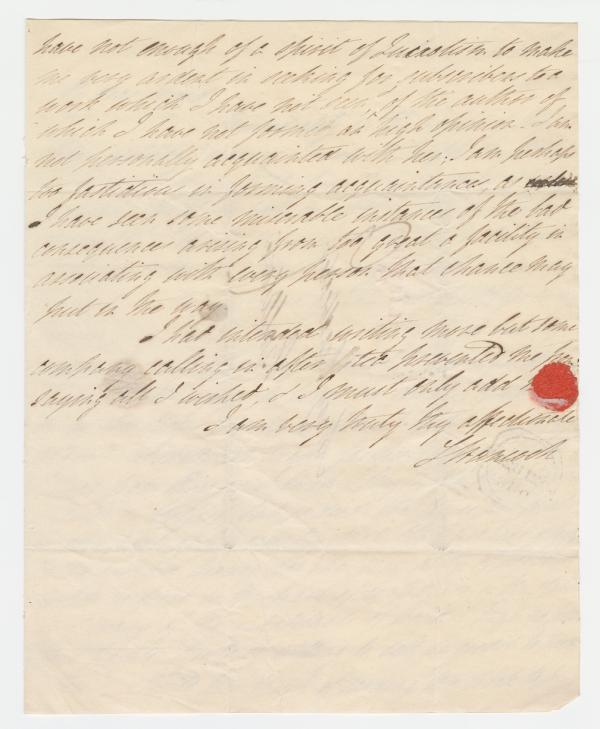 have not enough of a spirit of Quixotism to make
me very ardent in seeking for subscribers to a
work which I have not seen, of the author of
which I have not formed an high opinion. I am
not personally acquainted with her. I am perhaps
too fastidious in forming acquaintances, &
I have seen some miserable instances of the bad
consequences arising from too great a facility in
associating with every person that chance may
put in the way
I had intended writing more but some
company calling in after tea prevented me
saying all I wished, & I must only add
I am very truly thy affectionate
Hancock